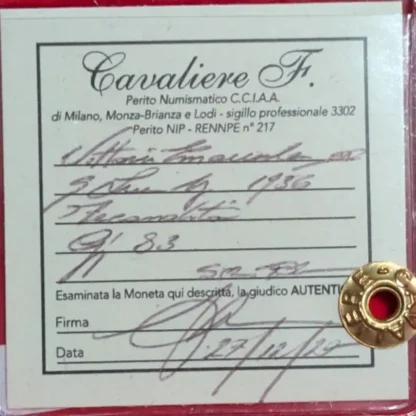 Cavaliere F.
Perito Numismatico C.C.I.A.A.
di Milano, Monza-Brianza e Lodi - sigillo professionale 3302
Perito NIP - RENNPE n° 217
Vittorio Emanuele III
5 Lire 1936
Fecondità
83
Esaminata la Moneta qui descritta, la giudico AUTENTI
Firma
Data 27/12/24